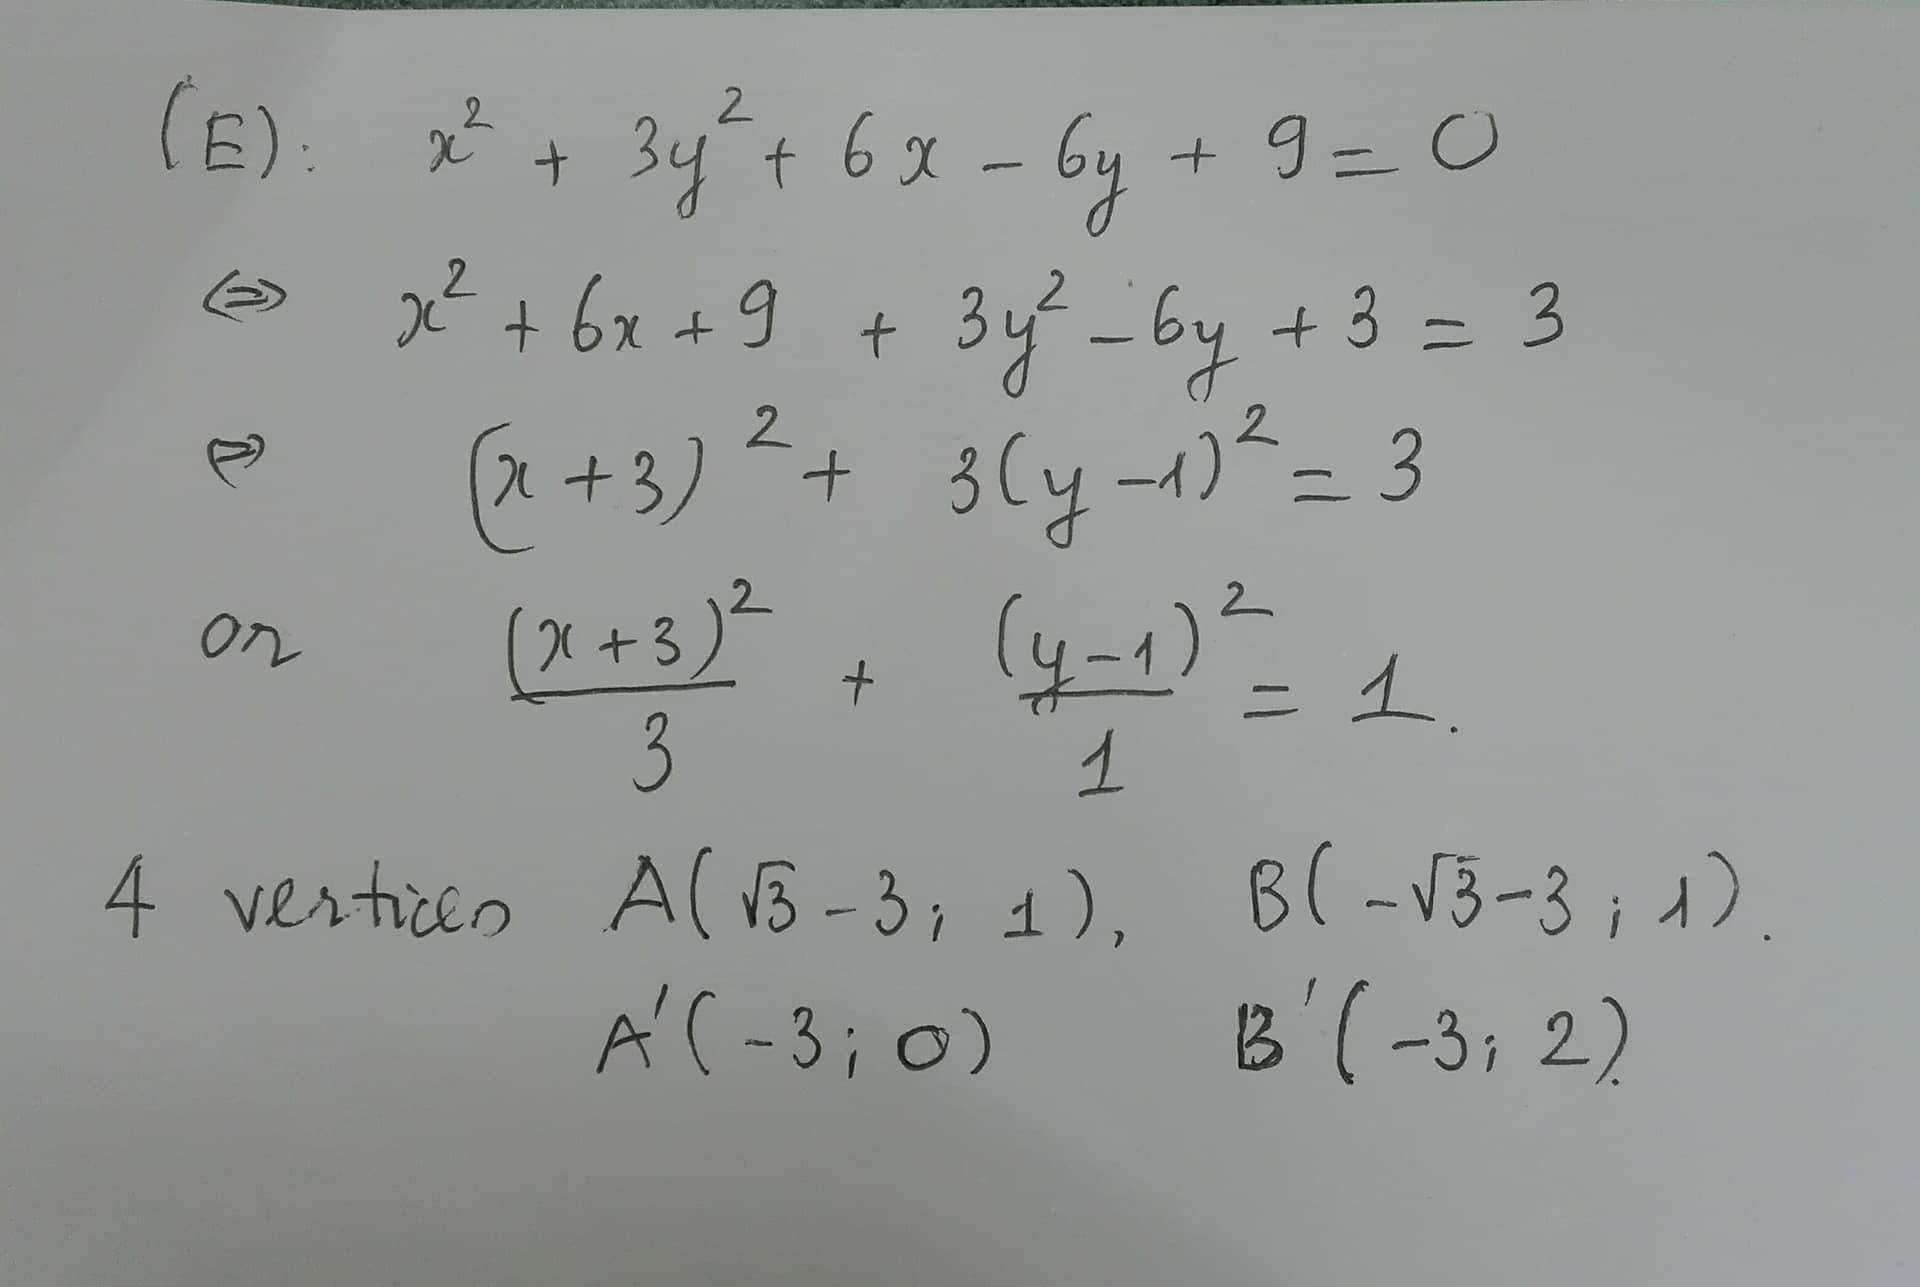 (E): x² + 3y² + 6x - 6y + 9 = 0
⇔ x² + 6x + 9 + 3y² - 6y + 3 = 3
⇔ (x+3)² + 3(y-1)² = 3
or (x+3)²/3 + (y-1)²/1 = 1.
4 vertices A(√3-3; 1), B(-√3-3; 1).
A'(-3; 0) B'(-3; 2).